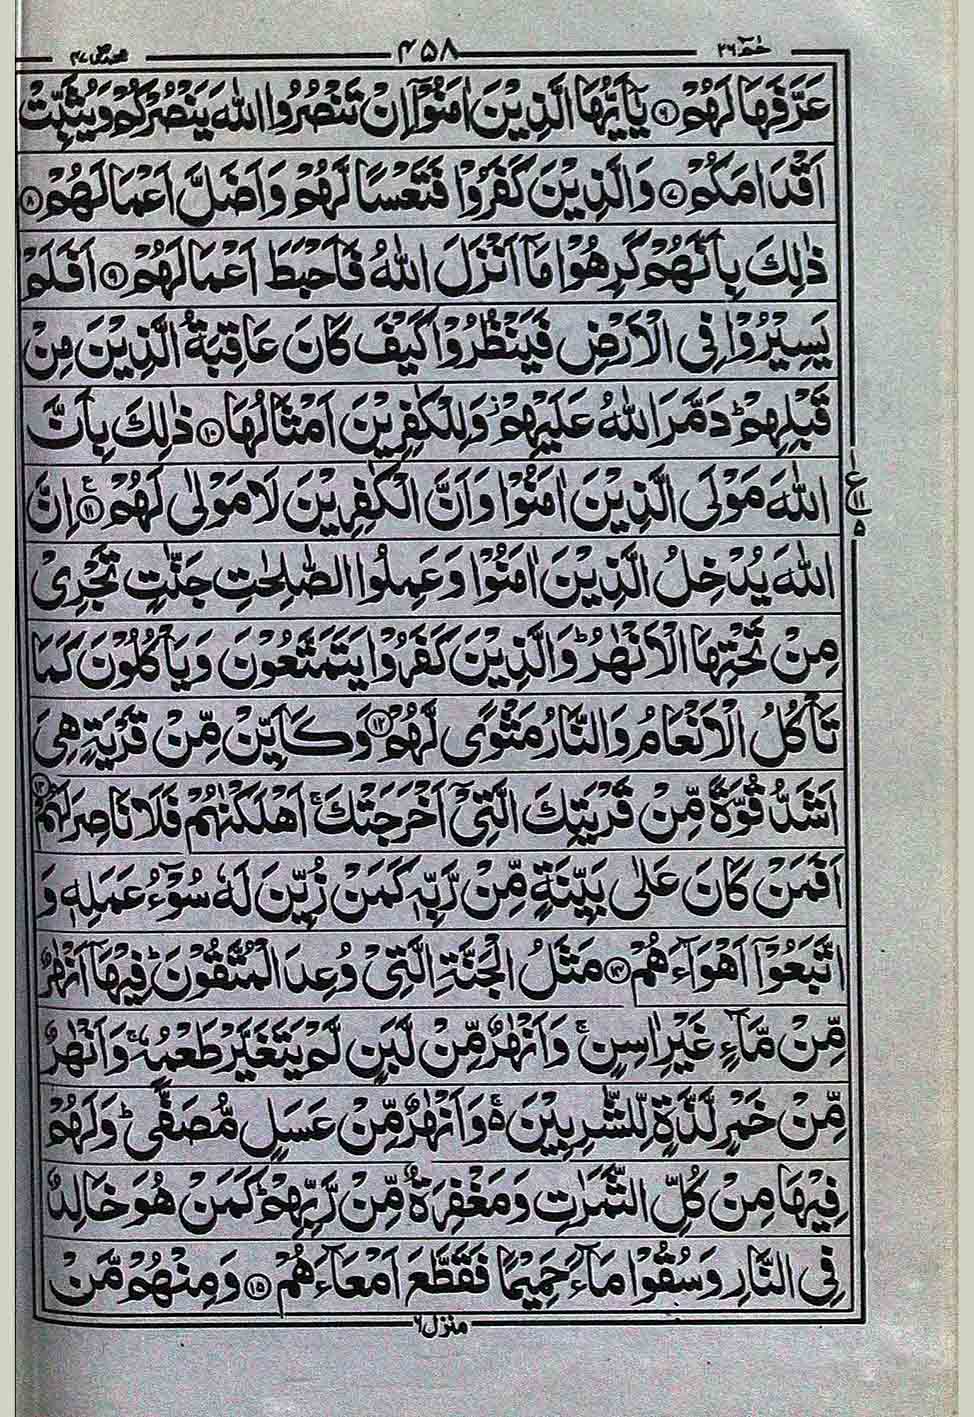 حٰمٓ ٢٦ ۴۵۸ محمد ۴۷
عَرَّفَهَا لَهُمْ ۶ يٰۤاَيُّهَا الَّذِيْنَ اٰمَنُوْۤا اِنْ تَنْصُرُوا اللّٰهَ يَنْصُرْكُمْ وَيُثَبِّتْ
اَقْدَامَكُمْ ۷ وَالَّذِيْنَ كَفَرُوْا فَتَعْسًا لَّهُمْ وَاَضَلَّ اَعْمَالَهُمْ ۸
ذٰلِكَ بِاَنَّهُمْ كَرِهُوْا مَاۤ اَنْزَلَ اللّٰهُ فَاَحْبَطَ اَعْمَالَهُمْ ۹ اَفَلَمْ
يَسِيْرُوْا فِى الْاَرْضِ فَيَنْظُرُوْا كَيْفَ كَانَ عَاقِبَةُ الَّذِيْنَ مِنْ
قَبْلِهِمْ ؕ دَمَّرَ اللّٰهُ عَلَيْهِمْ ؗ وَلِلْكٰفِرِيْنَ اَمْثَالُهَا ۱۰ ذٰلِكَ بِاَنَّ
اللّٰهَ مَوْلَى الَّذِيْنَ اٰمَنُوْا وَاَنَّ الْكٰفِرِيْنَ لَا مَوْلٰى لَهُمْ ۱۱ ع اِنَّ
ع ۱۱ ۵
اللّٰهَ يُدْخِلُ الَّذِيْنَ اٰمَنُوْا وَعَمِلُوا الصّٰلِحٰتِ جَنّٰتٍ تَجْرِىْ
مِنْ تَحْتِهَا الْاَنْهٰرُ ؕ وَالَّذِيْنَ كَفَرُوْا يَتَمَتَّعُوْنَ وَيَاْكُلُوْنَ كَمَا
تَاْكُلُ الْاَنْعَامُ وَالنَّارُ مَثْوًى لَّهُمْ ۱۲ وَكَاَيِّنْ مِّنْ قَرْيَةٍ هِىَ
اَشَدُّ قُوَّةً مِّنْ قَرْيَتِكَ الَّتِىْۤ اَخْرَجَتْكَ ۚ اَهْلَكْنٰهُمْ فَلَا نَاصِرَ لَهُمْ ۱۳
اَفَمَنْ كَانَ عَلٰى بَيِّنَةٍ مِّنْ رَّبِّهٖ كَمَنْ زُيِّنَ لَهٗ سُوْٓءُ عَمَلِهٖ وَ
اتَّبَعُوْۤا اَهْوَآءَهُمْ ۱۴ مَثَلُ الْجَنَّةِ الَّتِىْ وُعِدَ الْمُتَّقُوْنَ ؕ فِيْهَاۤ اَنْهٰرٌ
مِّنْ مَّآءٍ غَيْرِ اٰسِنٍ ۚ وَاَنْهٰرٌ مِّنْ لَّبَنٍ لَّمْ يَتَغَيَّرْ طَعْمُهٗ ۚ وَاَنْهٰرٌ
مِّنْ خَمْرٍ لَّذَّةٍ لِّلشّٰرِبِيْنَ ۬ۚ وَاَنْهٰرٌ مِّنْ عَسَلٍ مُّصَفًّى ؕ وَلَهُمْ
فِيْهَا مِنْ كُلِّ الثَّمَرٰتِ وَمَغْفِرَةٌ مِّنْ رَّبِّهِمْ ؕ كَمَنْ هُوَ خَالِدٌ
فِى النَّارِ وَسُقُوْا مَآءً حَمِيْمًا فَقَطَّعَ اَمْعَآءَهُمْ ۱۵ وَمِنْهُمْ مَّنْ
منزل ۶